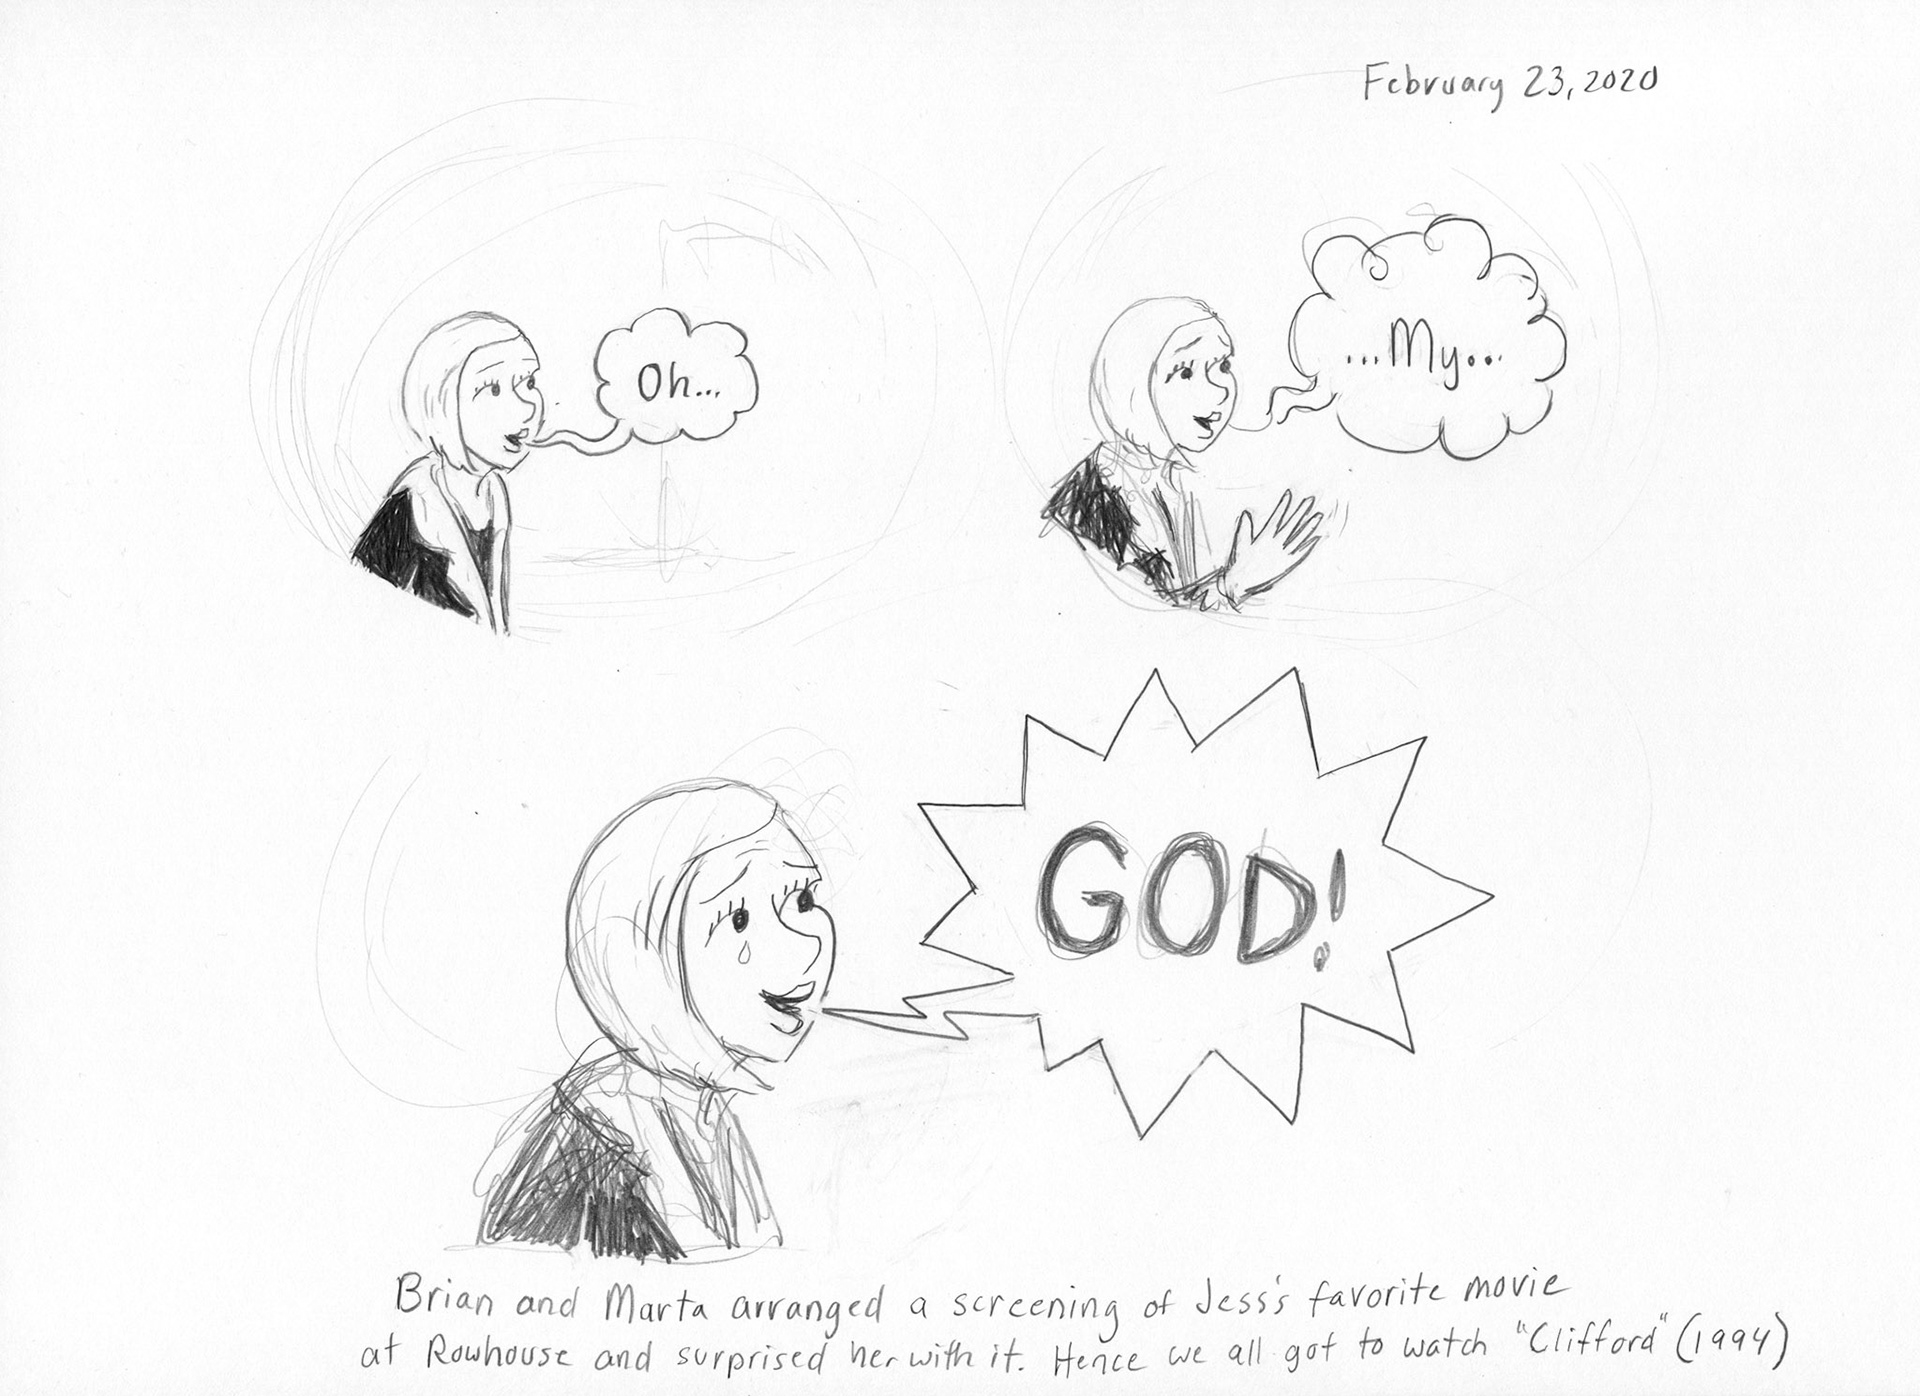 February 23, 2020
Oh...
...My...
GOD!
Brian and Marta arranged a screening of Jess's favorite movie
at Rowhouse and surprised her with it. Hence we all got to watch "Clifford" (1994)